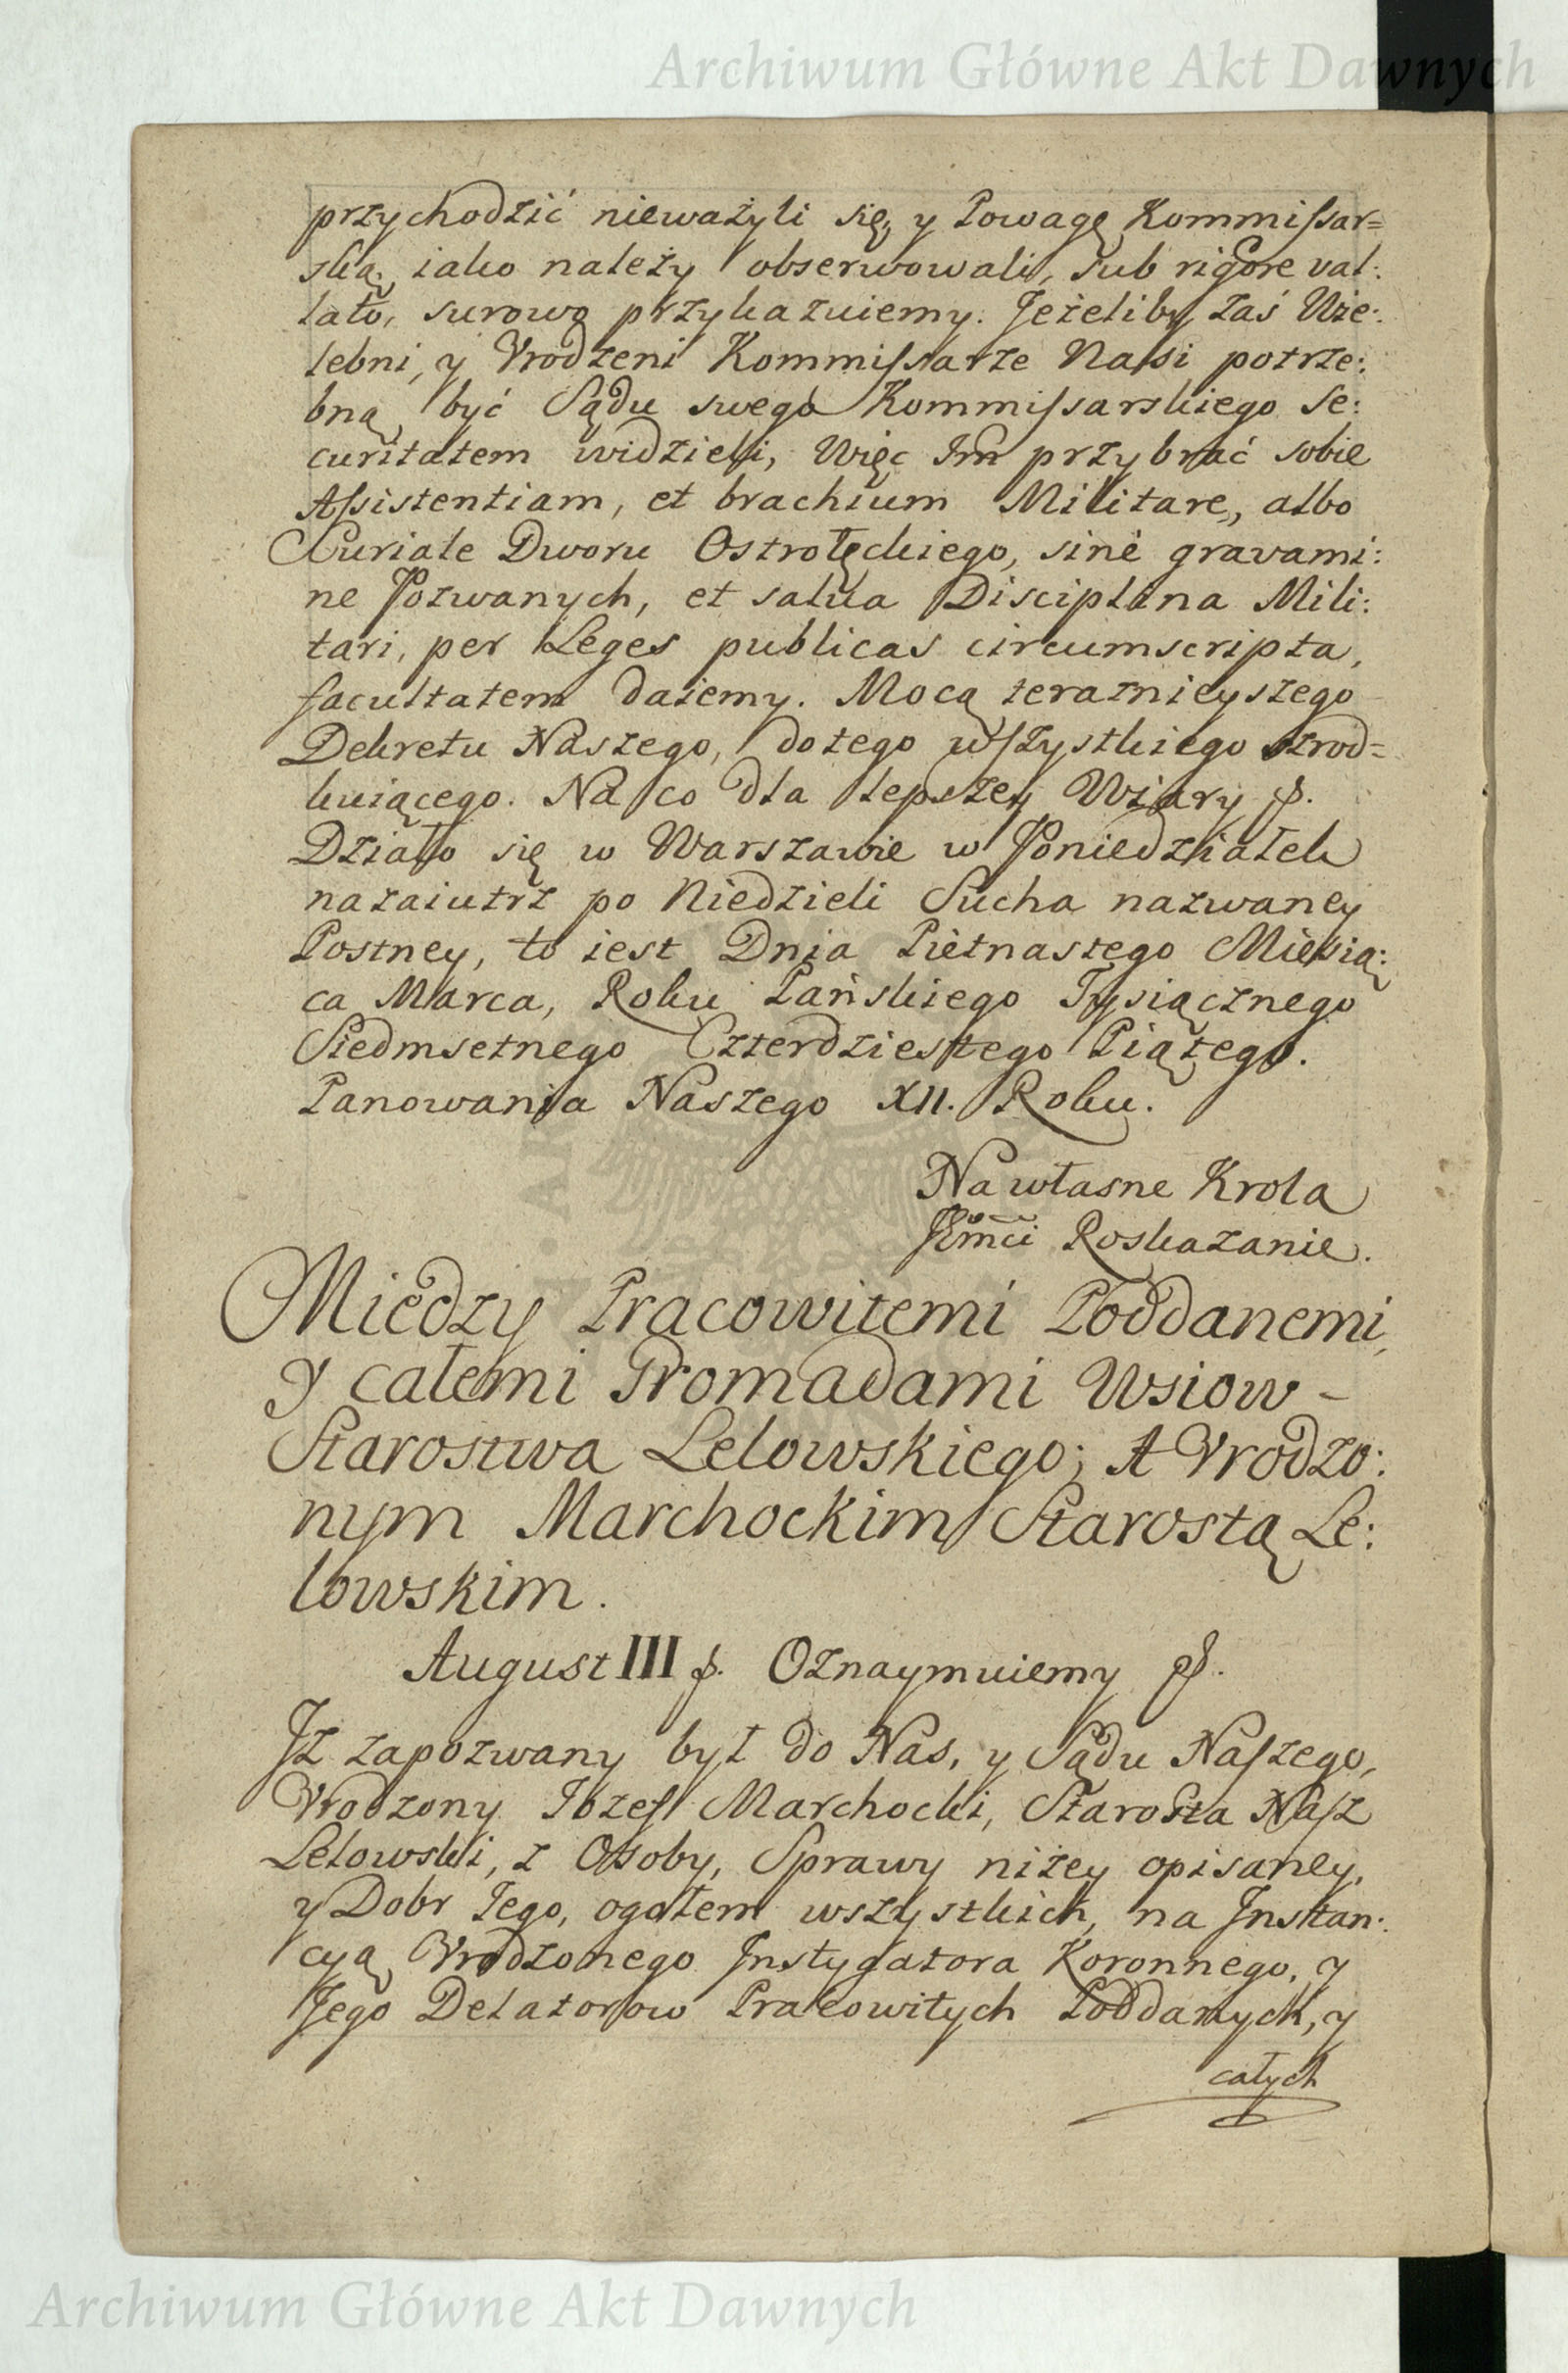 Archiwum Główne Akt Dawnych
przychodzić nieważyli się, y Powagę Kommissar=
ską, iako należy obserwowali, sub rigore val:
lato, surowo przykazuiemy. Jeżeliby zaś Wie:
lebni, y Vrodzeni Kommissarze Nasi potrze:
bną być Sądu swego Kommissarskiego Se:
curitatem widzieli, Więc Im przybrać sobie
Assistentiam, et brachium Militare, albo
Curiale Dworu Ostrołęckiego, sine gravami:
ne Pozwanych, et salva Disciplina Mili:
tari, per Leges publicas circumscripta,
facultatem daiemy. Mocą teraznieyszego
Dekretu Naszego, do tego wszystkiego szrod=
kuiącego. Na co dla lepszey Wiary p.
Działo się w Warszawie w Poniedziałek
nazaiutrz po Niedzieli Sucha nazwaney
Postney, to iest Dnia Piętnastego Miesią:
ca Marca, Roku Pańskiego Tysiącznego
Siedmsetnego Czterdziestego Piątego.
Panowania Naszego XII. Roku.
Na własne Krola
JEmci Roskazanie.
Miedzy Pracowitemi Poddanemi,
y całemi Gromadami Wsiow -
Starostwa Lelowskiego; A Vrodzo:
nym Marchockim Starostą Le:
lowskim.
August III p. Oznaymuiemy p.
Jż zapozwany był do Nas, y Sądu Naszego,
Vrodzony Jozef Marchocki, Starosta Nasz
Lelowski, z Osoby, Sprawy niżey opisaney,
y Dobr Jego, ogołem wszystkich, na Jnstan:
cyą Vrodzonego Jnstygatora Koronnego, y
Jego Delatorow Pracowitych Poddanych, y
całych
Archiwum Główne Akt Dawnych